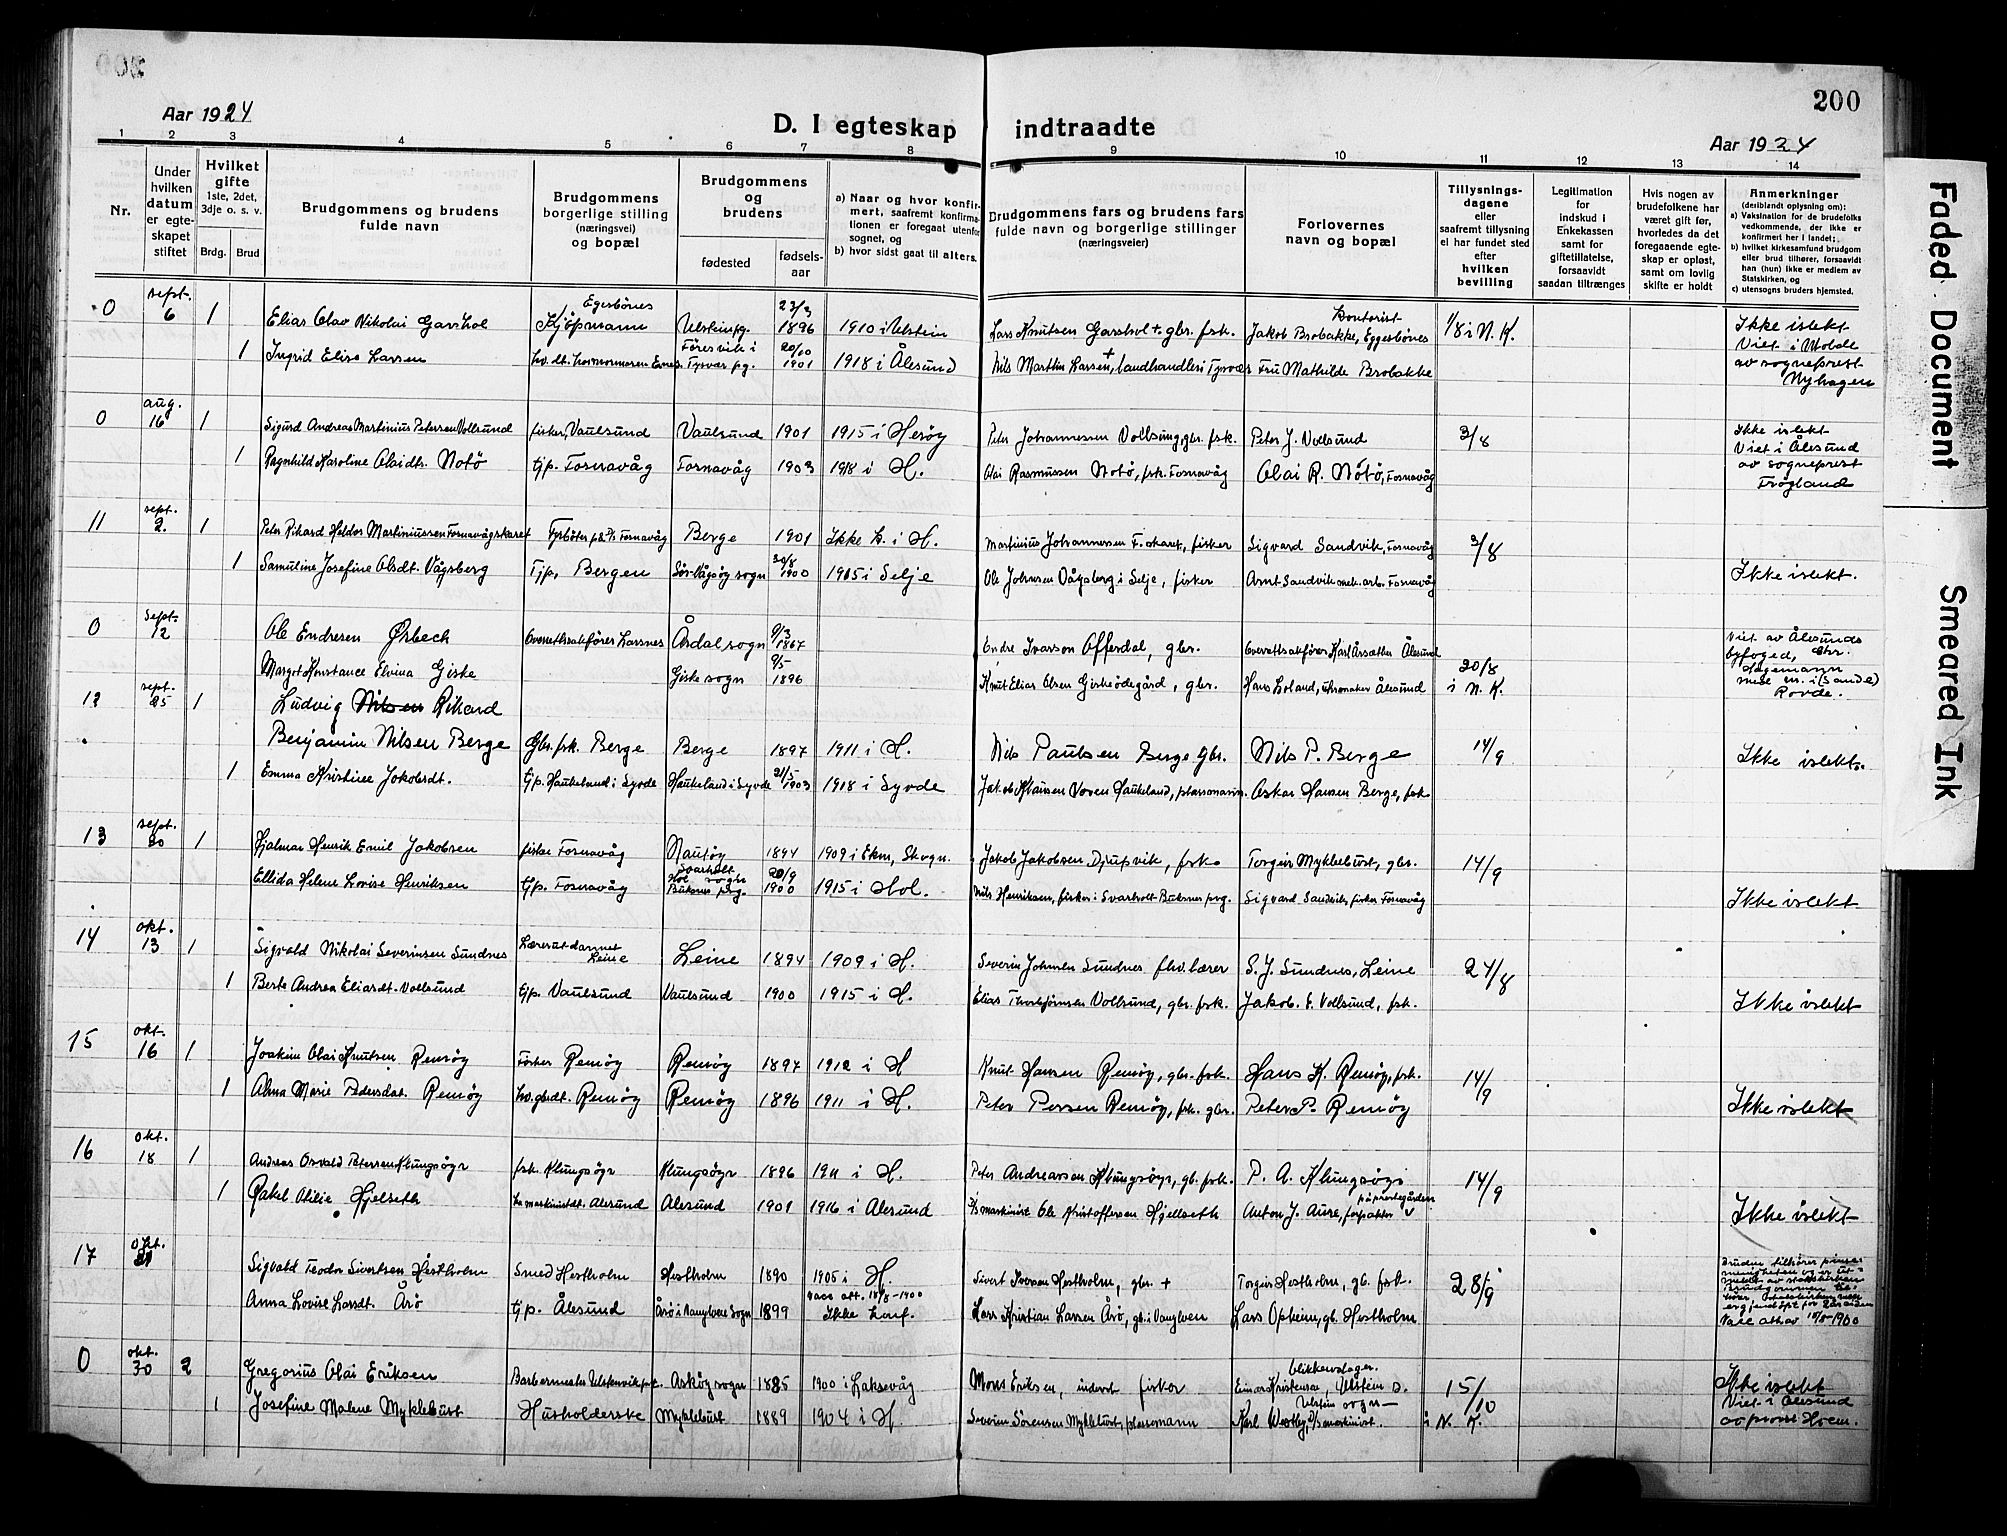 200
Aar 1924
D. I egteskap indtraadte
Aar 1924
Faded Document
Smeared Ink
1 2 3 4 5 6 7 8 9 10 11 12 13 14
Nr.
Under hvilken datum er egteskapet stiftet
Hvilket gifte 1ste, 2det, 3dje o. s. v.
Brdg. Brud
Brudgommens og brudens fulde navn
Brudgommens borgerlige stilling (næringsvei) og bopæl
Brudgommens og brudens
fødested
fødselsaar
a) Naar og hvor konfirmert, saafremt konfirmationen er foregaat utenfor sognet, og
b) hvor sidst gaat til alters.
Brudgommens fars og brudens fars fulde navn og borgerlige stillinger (næringsveier)
Forlovernes navn og bopæl
Tillysningsdagene eller saafremt tillysning ei har fundet sted efter hvilken bevilling
Legitimation for indskud i Enkekassen samt for giftetillatelse, forsaavidt saadan tiltrænges
Hvis nogen av brudefolkene har været gift før, hvorledes da det foregaaende egteskap er opløst, samt om lovlig skifte er holdt
Anmerkninger (deriblandt oplysning om):
a) Vaksination for de brudefolks vedkommende, der ikke er konfirmert her i landet;
b) hvilket kirkesamfund brudgom eller brud tilhører, forsaavidt han (hun) ikke er medlem av Statskirken, og
c) utensogns bruders hjemsted.
0 sept. 6 1 Elias Olav Nikolai Garshol Kjöpmann Egesbönes Ulsteinpg. 23/3 1896 1910 i Ulstein Lars Knutsen Garshol + gbr. fsk. Kontorist Jakob Brobakke, Eggesbönes 1/8 i N. K. Ikke i slekt
1 Ingrid Elise Larsen Föresvik i Tysvær pg. 20/10 1901 1918 i Ålesund Nils Marthin Larsen + landhandler i Tysvær Fru Mathilde Brobakke Viet i Molde av sogneprest Nyhagen
0 aug. 16 1 Sigurd Andreas Martinius Petersen Vollsund fisker, Vaulsund Vaulsund 1901 1915 i Heröy Peter Johannessen Vollsund, gbr. fsk. Peter J. Vollsund 3/8 Ikke i slekt
1 Ragnhild Karoline Olaidtr. Notö tjp. Fosnavåg Fosnavåg 1903 1918 i H. Olai Rasmussen Notö, fsk. Fosnavåg Olai R. Nötö, Fosnavåg Viet i Ålesund av sogneprest Frögland
11 sept. 2. 1 Peter Rikard Heldor Martiniussen Fosnavågskaret Fyrböter på D/S Fosnavåg Berge 1901 Ikke k. i H. Martinius Johannessen F. skaret, fisker Sigvard Sandvik, Fosnavåg 3/8
1 Samuline Josefine Olsdt. Vågsberg Tjp, Bergen Sör-Vågsöy sogn 30/8 1900 1915 i Selje Ole Johnsen Vågsberg i Selje, fisker Arnt Sandvik mek. arb. Fosnavåg Ikke i slekt.
0 Sept. 12 Ole Endresen Ørbech Overrettssakförer Larsnes Årdal sogn 9/3 1867 Endre Ivarson Offerdal, gbr. Overrettssakförer Karl Aarsæther Ålesund 20/8 i N. K. Viet av Ålesunds byfoged, Chr. Hagemann
Margot Konstance Elvina Giske Giske sogn 9/5 1896 Knut Elias Olsen Giskeödegård, gbr. Hans Loland, urmaker Ålesund i (Sande) Rovde.
12 sept. 25 1 Ludvig Nilsen Rikard
Benjamin Nilsen Berge Gbr. fsk. Berge Berge 1897 1911 i H. Nils Paulsen Berge Gbr. Nils P. Berge 14/9 Ikke i slekt.
1 Emma Kristine Jakobsdt. tjp. Haukeland i Syvde Haukeland i Syvde 21/5 1903 1918 i Syvde Jakob Klausen Voven Haukeland, plassmann. Oskar Hansen Berge, fsk
13 sept. 30 1 Hjalmar Henrik Emil Jakobsen fisker Fosnavåg Nautöy 1894 1909 i Ekm, Skogn. Jakob Jakobsen Djupvik, fsk. Torgeir Myklebust, gbr. 14/9
1 Ellida Helene Lovise Henriksen tjp. Fosnavåg Svarholt Hol sogn Buksnes prg. 20/9 1900 1915 i Hol. Nils Henriksen, fisker i Svarholt Buksnes prg. Sigvard Sandvik, fisker Fosnavåg Ikke i slekt
14 okt. 13 1 Sigvald Nikolai Severinsen Sundnes Lærerutdannet Leine Leine 1894 1909 i H. Severin Johnsen Sundnes fhv. lærer S. J. Sundnes, Leine 24/8
1 Berte Andrea Eliasdt. Vollsund tjp. Vaulsund Vaulsund 1900 1915 i H. Elias Thorbjørnsen Vollsund, gbr. fsk. Jakob. E. Vollsund, fsk. Ikke i slekt
15 okt. 16 1 Joakim Olai Knutsen Remöy Fisker Remöy Remöy 1897 1912 i H Knut Hansen Remöy, gbr. fsk. Hans K. Remöy, fsk. 14/9
1 Alma Marie Pedersdat. Remöy hv. gbdt. Remöy Remöy 1896 1911 i H. Peter Persen Remöy, fsk. gbr. Peter P. Remöy Ikke i slekt
16 okt. 18 1 Andreas Osvald Petersen Klungsöyr fsk. Klungsöyr Klungsöyr 1896 1911 i H. Peter Andreassen Klungsöyr, gb. fsk. P. A. Klungsöyr 14/9
1 Rakel Otilie Hjelseth hv. maskinistdt. Ålesund Ålesund 1901 1916 i Ålesund D/S maskinist Ole Kristoffersen Hjellseth Anton J. Aure, forpakter på prestegården Ikke i slekt
17 Okt. 21 Sigvald Teodor Sivertsen Hestholm Smed Hestholm Hestholm 1890 1905 i H. Sivert Iversen Hestholm, gbr. + Torgeir Hestholm, gb. fsk. 28/9 Bruden tilhører pinsemenigheten og er utmeldt av statskirken
Anna Lovise Larsdt. Årö tjp. Ålesund Årö i Vanylven Sogn 1899 vacc. att. 18/8-1900 Ikke konf. Lars Kristian Larsen Årö, gb. i Vanylven Lars Opheim, gb. Hestholm Vacc. att. av 18/8-1900
0 okt. 30 2 Gregorius Olai Eriksen Barbermester Ulsteinvik Asköy sogn 1885 1900 i Laksevåg Mons Eriksen, inderst fisker blikkenslager. Einar Kristensen, Ulstein s. 15/10 Ikke i slekt
1 Josefine Malene Myklebust Husholderske Myklebust 1889 1904 i H. Severin Sörensen Myklebust, plassmann Ulstein sogn Karl Westby, D/S maskinist. i N. K. Viet i Ålesund av prost Hoem.